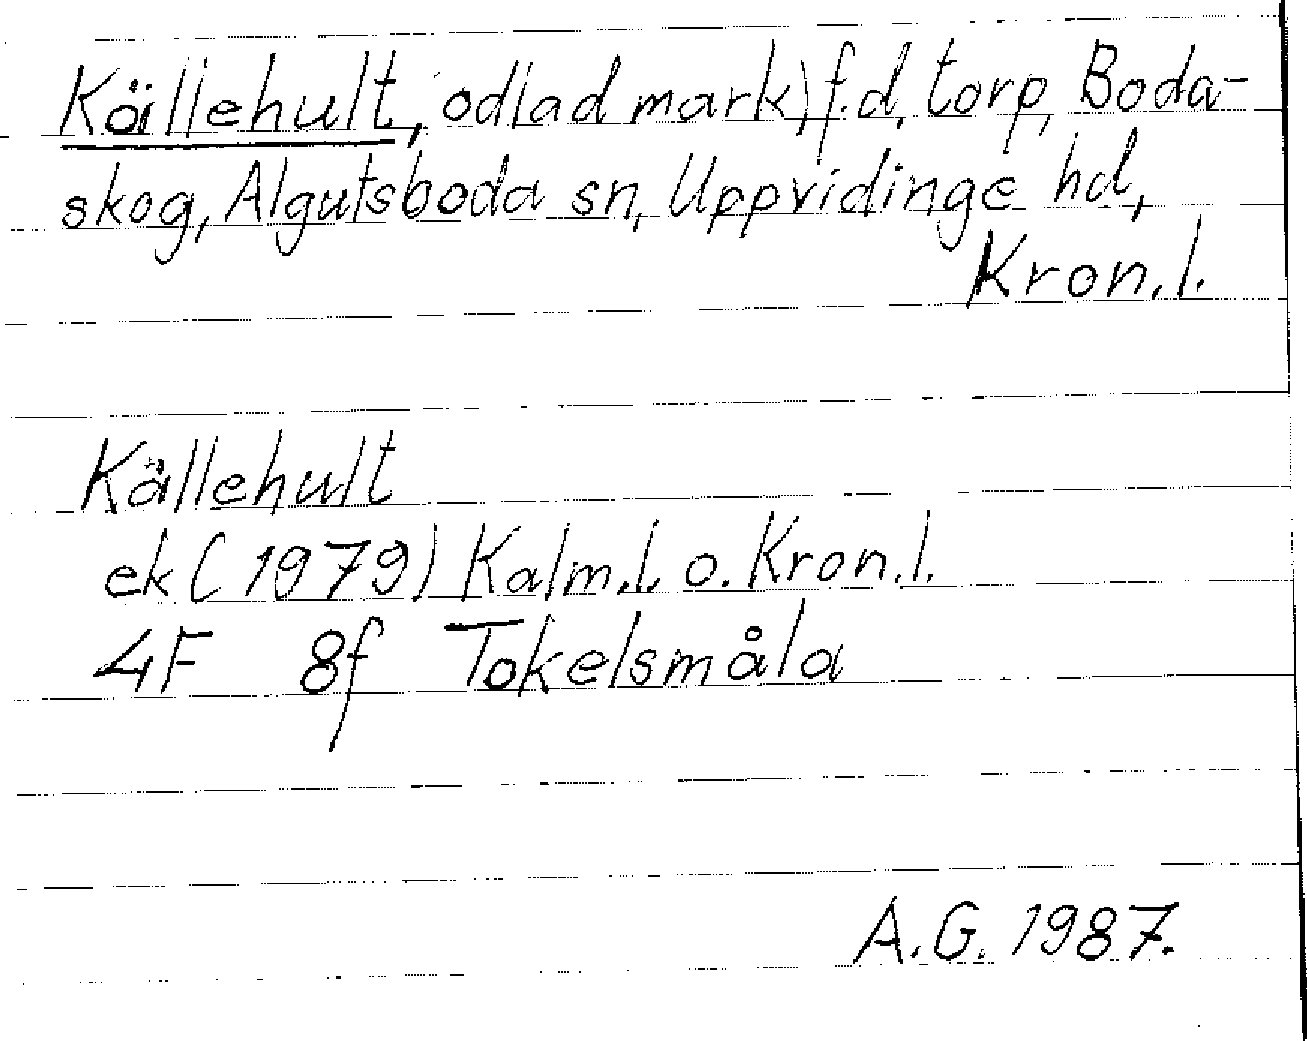 Källehult, odlad mark, f.d. torp, Boda-
skog, Algutsboda sn, Uppvidinge hd,
Kron.l.
Källehult
ek (1979) Kalm.l. o. Kron.l.
4F 8f Tokelsmåla
A.G. 1987.